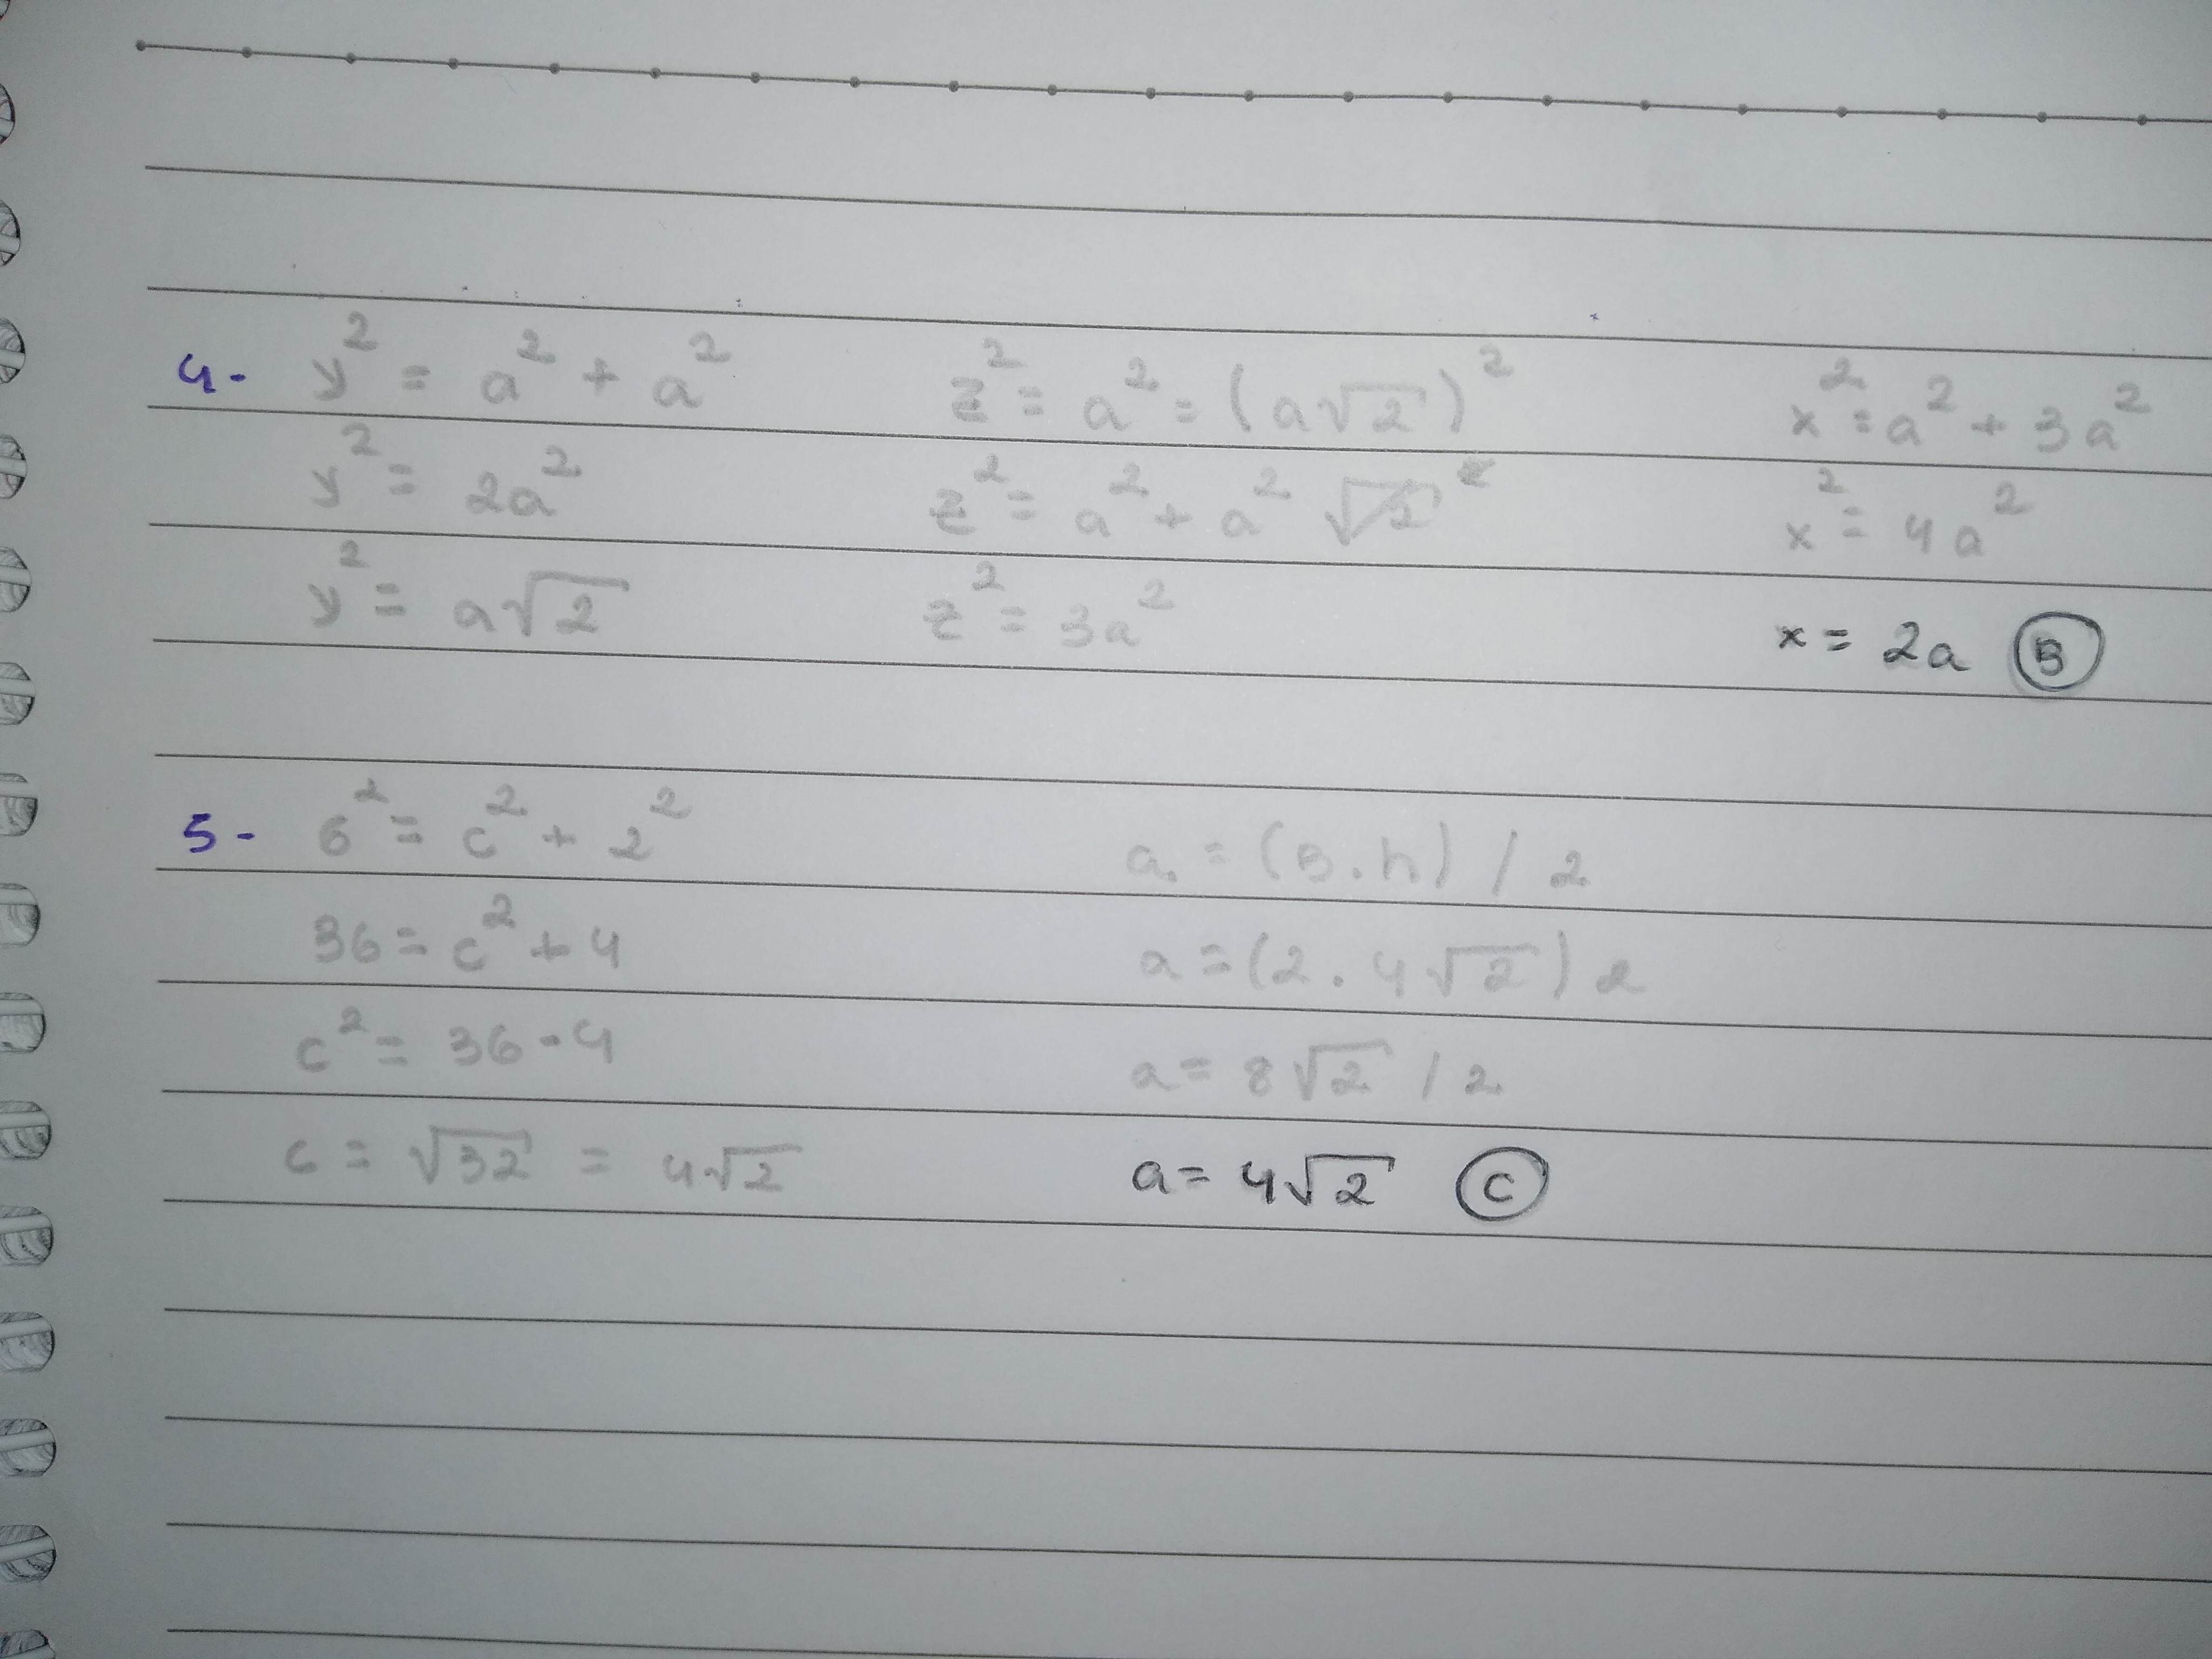 4- y² = a² + a²
y² = 2a²
y² = a√2
z² = a² = (a√2)²
z² = a² + a² √2²
z² = 3a²
x² = a² + 3a²
x² = 4a²
x = 2a B
5- 6² = c² + 2²
36 = c² + 4
c² = 36 - 4
c = √32 = 4√2
a. = (B.h) / 2
a = (2 . 4√2) 2
a = 8√2 / 2
a = 4√2 C